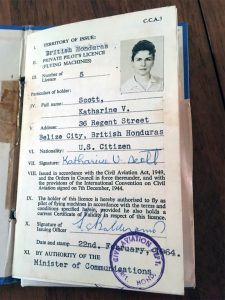 C.C.A.3
I. TERRITORY OF ISSUE:
British Honduras
II. PRIVATE PILOT'S LICENCE
(FLYING MACHINES)
III. Number of
Licence 5
Particulars of holder:
IV. Full name: Scott,
Katharine V.
V. Address: 36 Regent Street
Belize City, British Honduras
VI. Nationality: U.S. Citizen
VII. Signature: Katharine V. Scott
VIII. Issued in accordance with the Civil Aviation Act, 1949,
and the Orders in Council in force thereunder, and with
the provisions of the International Convention on Civil
Aviation signed on 7th December, 1944.
IX. The holder of this licence is hereby authorised to fly as
pilot of flying machines in accordance with the terms and
conditions specified herein, provided he also holds a
current Certificate of Validity in respect of this licence.
X. Signature of
issuing Officer
Date and stamp 22nd. February, 1964.
XI. BY AUTHORITY OF THE
Minister of Communications.
CIVIL AVIATION